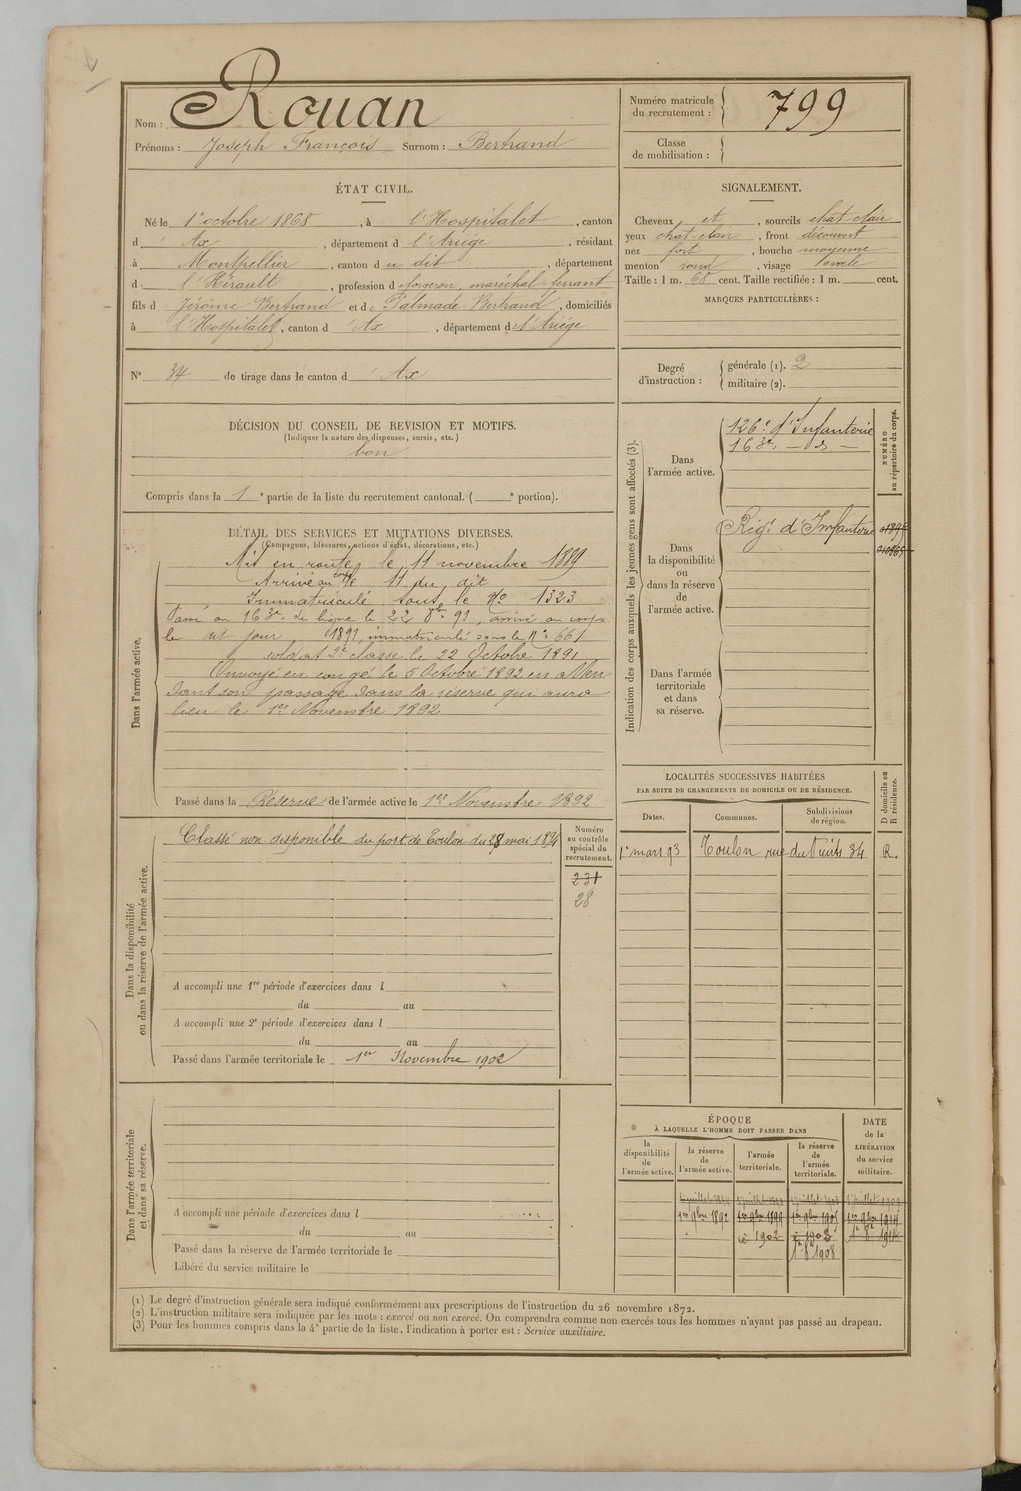 Nom : Rouan
Prénoms : Joseph François Surnom : Bertrand
ÉTAT CIVIL.
Né le 1er octobre 1868, à l'Hospitalet, canton
d'Ax, département d l'Ariège, résidant
à Montpellier, canton du dit, département
d l'Hérault, profession de forgeron, maréchal-ferrant
fils d Jérôme Bertrand et de Palmade Bertrand, domiciliés
à l'Hospitalet, canton d'Ax, département d l'Ariége
N° 34 de tirage dans le canton d'Ax
DÉCISION DU CONSEIL DE REVISION ET MOTIFS.
(Indiquer la nature des dispenses, sursis, etc.)
bon
Compris dans la 1e partie de la liste du recrutement cantonal. ( e portion).
DÉTAIL DES SERVICES ET MUTATIONS DIVERSES.
(Campagnes, blessures, actions d'éclat, décorations, etc.)
Dans l'armée active.
Mis en route le 11 novembre 1889
Arrivé au corps le 11 du dit
Immatriculé sous le No 1323
Passé au 163e de ligne le 22 8bre 91, arrivé au corps
le dit jour 1891, immatriculé sous le N° 661
soldat 2e classe le 22 Octobre 1891
Envoyé en congé le 5 Octobre 1892 en atten
dant son passage dans la réserve qui aura
lieu le 1er Novembre 1892
Passé dans la Réserve de l'armée active le 1er Novembre 1892
Dans la disponibilité
ou dans la réserve de l'armée active.
Classé non disponible du port de Toulon du 28 mai 1894
Numéro
au contrôle
spécial du
recrutement.
231
28
A accompli une 1re période d'exercices dans l
du au
A accompli une 2e période d'exercices dans l
du au
Passé dans l'armée territoriale le 1er Novembre 1902
Dans l'armée territoriale
et dans sa réserve.
A accompli une période d'exercices dans l
du au
Passé dans la réserve de l'armée territoriale le
Libéré du service militaire le
Numéro matricule
du recrutement : 799
Classe
de mobilisation :
SIGNALEMENT.
Cheveux et, sourcils chat-clair
yeux chat-clair, front découvert
nez fort, bouche moyenne
menton rond, visage ovale
Taille : 1 m. 68 cent. Taille rectifiée : 1 m. cent.
MARQUES PARTICULIÈRES :
Degré
d'instruction :
générale (1). 2
militaire (2).
Indication des corps auxquels les jeunes gens sont affectés (3).
NUMÉRO
au répertoire du corps.
Dans
l'armée active.
126e d'Infanterie
163e — d° —
Dans
la disponibilité
ou
dans la réserve
de
l'armée active.
Régt d'Infanterie
Dans l'armée
territoriale
et dans
sa réserve.
LOCALITÉS SUCCESSIVES HABITÉES
PAR SUITE DE CHANGEMENTS DE DOMICILE OU DE RÉSIDENCE.
D domicile ou
R résidence.
Dates. Communes. Subdivisions
de région.
1er mars 93 Toulon rue du Puits 34 R.
ÉPOQUE
À LAQUELLE L'HOMME DOIT PASSER DANS
DATE
de la
LIBÉRATION
du service
militaire.
la
disponibilité
de
l'armée active.
la réserve
de
l'armée active.
l'armée
territoriale.
la réserve
de
l'armée
territoriale.
1er 9bre 1892 1er 9bre 1899 1er 9bre 1905 1er 9bre 1914
1902 1908
1908
(1) Le degré d'instruction générale sera indiqué conformément aux prescriptions de l'instruction du 26 novembre 1872.
(2) L'instruction militaire sera indiquée par les mots : exercé ou non exercé. On comprendra comme non exercés tous les hommes n'ayant pas passé au drapeau.
(3) Pour les hommes compris dans la 4e partie de la liste, l'indication à porter est : Service auxiliaire.